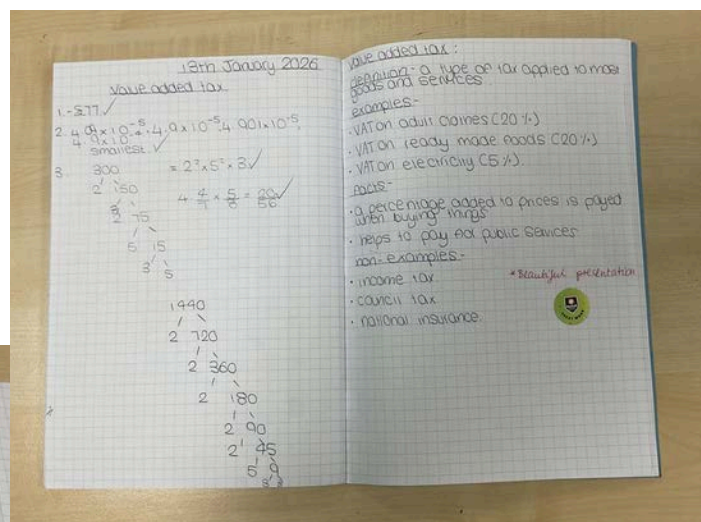 13th January 2026
value added tax
1. -2.77 ✓
smallest ✓
3. 300 = 2² × 5² × 3 ✓
2 150
2 75
5 15
3 5
1440
2 720
2 360
2 180
2 90
2 45
5 9
value added tax :
definition - a type of tax applied to most
goods and services
examples -
• VAT on adult clothes (20%)
• VAT on ready made foods (20%)
• VAT on electricity (5%)
facts -
• a percentage added to prices is payed
when buying things
• helps to pay for public services
non-examples -
• income tax
• council tax
• national insurance.
* Beautiful presentation